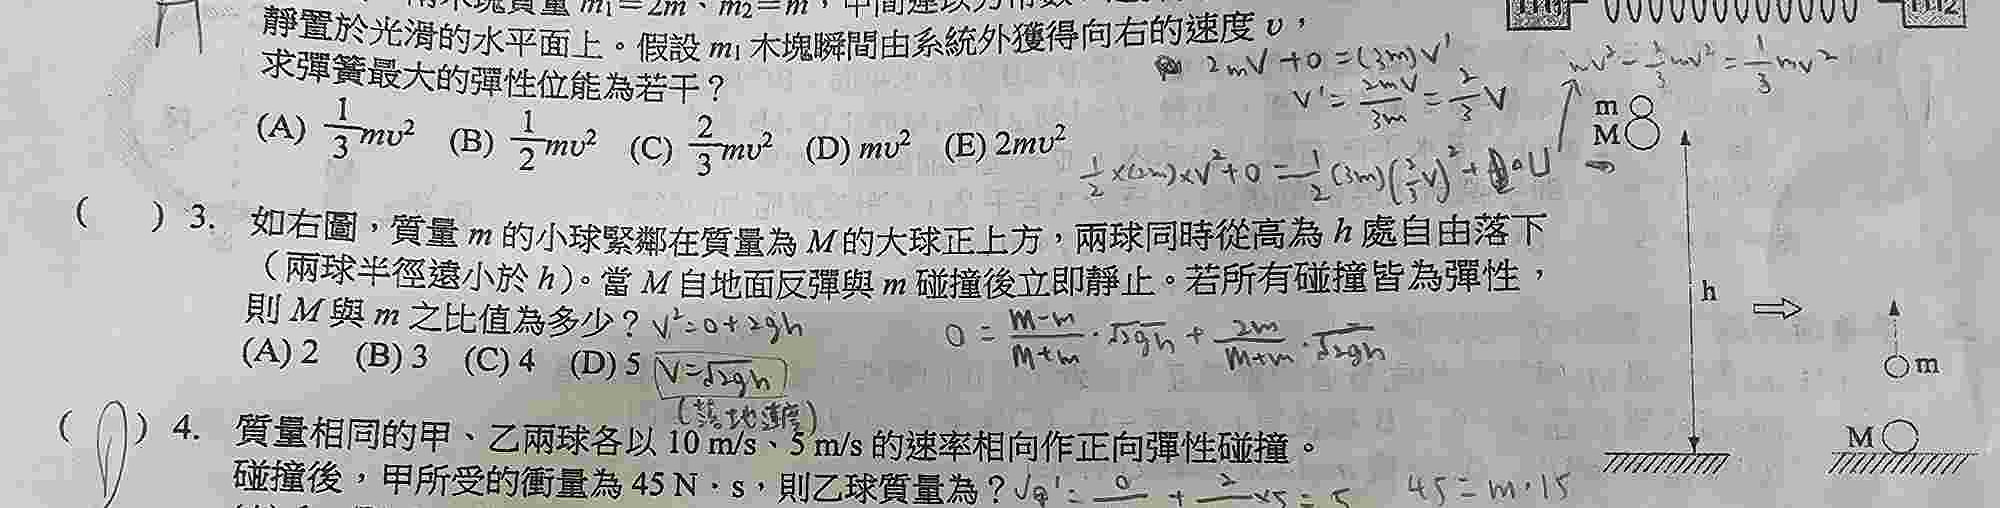 靜置於光滑的水平面上。假設 m₁ 木塊瞬間由系統外獲得向右的速度 υ，
求彈簧最大的彈性位能為若干？
(A) 1/3 mυ² (B) 1/2 mυ² (C) 2/3 mυ² (D) mυ² (E) 2mυ²
2mV+0=(3m)V'
V'=2mV/3m=2/3 V
mv²-2/3mv²=1/3mv²
1/2×(2m)×V²+0=1/2(3m)(2/3V)²+U
m
M
( ) 3. 如右圖，質量 m 的小球緊鄰在質量為 M 的大球正上方，兩球同時從高為 h 處自由落下
（兩球半徑遠小於 h）。當 M 自地面反彈與 m 碰撞後立即靜止。若所有碰撞皆為彈性，
則 M 與 m 之比值為多少？
V²=0+2gh
0=M-m/M+m·√2gh+2m/M+m·√2gh
(A) 2 (B) 3 (C) 4 (D) 5
V=√2gh
(落地速度)
h
m
M
( ) 4. 質量相同的甲、乙兩球各以 10 m/s、5 m/s 的速率相向作正向彈性碰撞。
碰撞後，甲所受的衝量為 45 N·s，則乙球質量為？
45=m·15